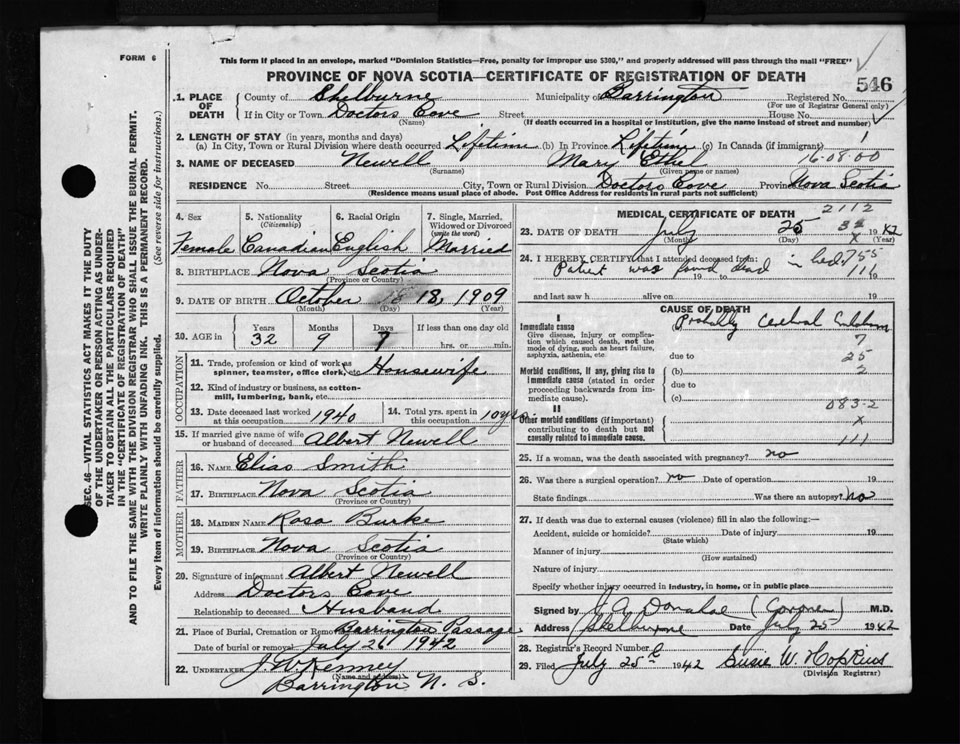 FORM 6
This form if placed in an envelope, marked "Dominion Statistics—Free, penalty for improper use $300," and properly addressed will pass through the mail "FREE"
PROVINCE OF NOVA SCOTIA—CERTIFICATE OF REGISTRATION OF DEATH
546
1. PLACE OF DEATH
County of Shelburne Municipality of Barrington Registered No.
(For use of Registrar General only)
If in City or Town Doctors Cove Street House No.
(Name) (If death occurred in a hospital or institution, give the name instead of street and number)
2. LENGTH OF STAY (in years, months and days)
(a) In City, Town or Rural Division where death occurred Lifetime (b) In Province Lifetime (c) In Canada (if immigrant) 1
3. NAME OF DECEASED Newell Mary Ethel 16-08-00
(Surname) (Given name or names)
RESIDENCE No. Street City, Town or Rural Division Doctors Cove Province Nova Scotia
(Residence means usual place of abode. Post Office Address for residents in rural parts not sufficient)
4. Sex
Female
5. Nationality
(Citizenship)
Canadian
6. Racial Origin
English
7. Single, Married, Widowed or Divorced
(write the word)
Married
8. BIRTHPLACE Nova Scotia
(Province or Country)
9. DATE OF BIRTH October 18, 1909
(Month) (Day) (Year)
10. AGE in
Years Months Days If less than one day old
32 9 7 hrs. or min.
OCCUPATION
11. Trade, profession or kind of work as
spinner, teamster, office clerk, etc Housewife
12. Kind of industry or business, as cotton-
mill, lumbering, bank, etc.
13. Date deceased last worked
at this occupation 1940
14. Total yrs. spent in
this occupation 10 yrs.
15. If married give name of wife
or husband of deceased Albert Newell
FATHER
16. NAME Elias Smith
17. BIRTHPLACE Nova Scotia
(Province or Country)
MOTHER
18. MAIDEN NAME Rosa Burke
19. BIRTHPLACE Nova Scotia
(Province or Country)
20. Signature of informant Albert Newell
Address Doctors Cove
Relationship to deceased Husband
21. Place of Burial, Cremation or Removal Barrington Passage
Date of burial or removal July 26 1942
22. UNDERTAKER J. W. Kenney
(Name and address)
Barrington N. S.
MEDICAL CERTIFICATE OF DEATH 2112
23. DATE OF DEATH July 25 1942
(Month) (Day) x (Year)
24. I HEREBY CERTIFY that I attended deceased from:
Patient was found dead in bed
19 19
and last saw h alive on 19
CAUSE OF DEATH
I
Immediate cause
Give disease, injury or complication which caused death, not the mode of dying, such as heart failure, asphyxia, asthenia, etc
Probably Cerebral Embolism
7
due to 25
Morbid conditions, if any, giving rise to immediate cause (stated in order proceeding backwards from immediate cause).
(b) 2
due to
(c)
083-2
II
Other morbid conditions (if important) contributing to death but not causally related to immediate cause.
x
111
25. If a woman, was the death associated with pregnancy? no
26. Was there a surgical operation? no Date of operation 19
State findings Was there an autopsy? no
27. If death was due to external causes (violence) fill in also the following:—
Accident, suicide or homicide? Date of injury 19
(State which)
Manner of injury
(How sustained)
Nature of injury
Specify whether injury occurred in industry, in home, or in public place
Signed by J A Donahoe (Coroner) M.D.
Address Shelburne Date July 25 1942
28. Registrar's Record Number
29. Filed July 25th 1942 Susie W. Hopkins
(Division Registrar)
SEC. 46—VITAL STATISTICS ACT MAKES IT THE DUTY
OF THE UNDERTAKER OR PERSON ACTING AS UNDER-
TAKER TO OBTAIN ALL THE PARTICULARS REQUIRED
IN THE "CERTIFICATE OF REGISTRATION OF DEATH"
AND TO FILE THE SAME WITH THE DIVISION REGISTRAR WHO SHALL ISSUE THE BURIAL PERMIT.
WRITE PLAINLY WITH UNFADING INK. THIS IS A PERMANENT RECORD.
Every item of information should be carefully supplied. (See reverse side for instructions.)